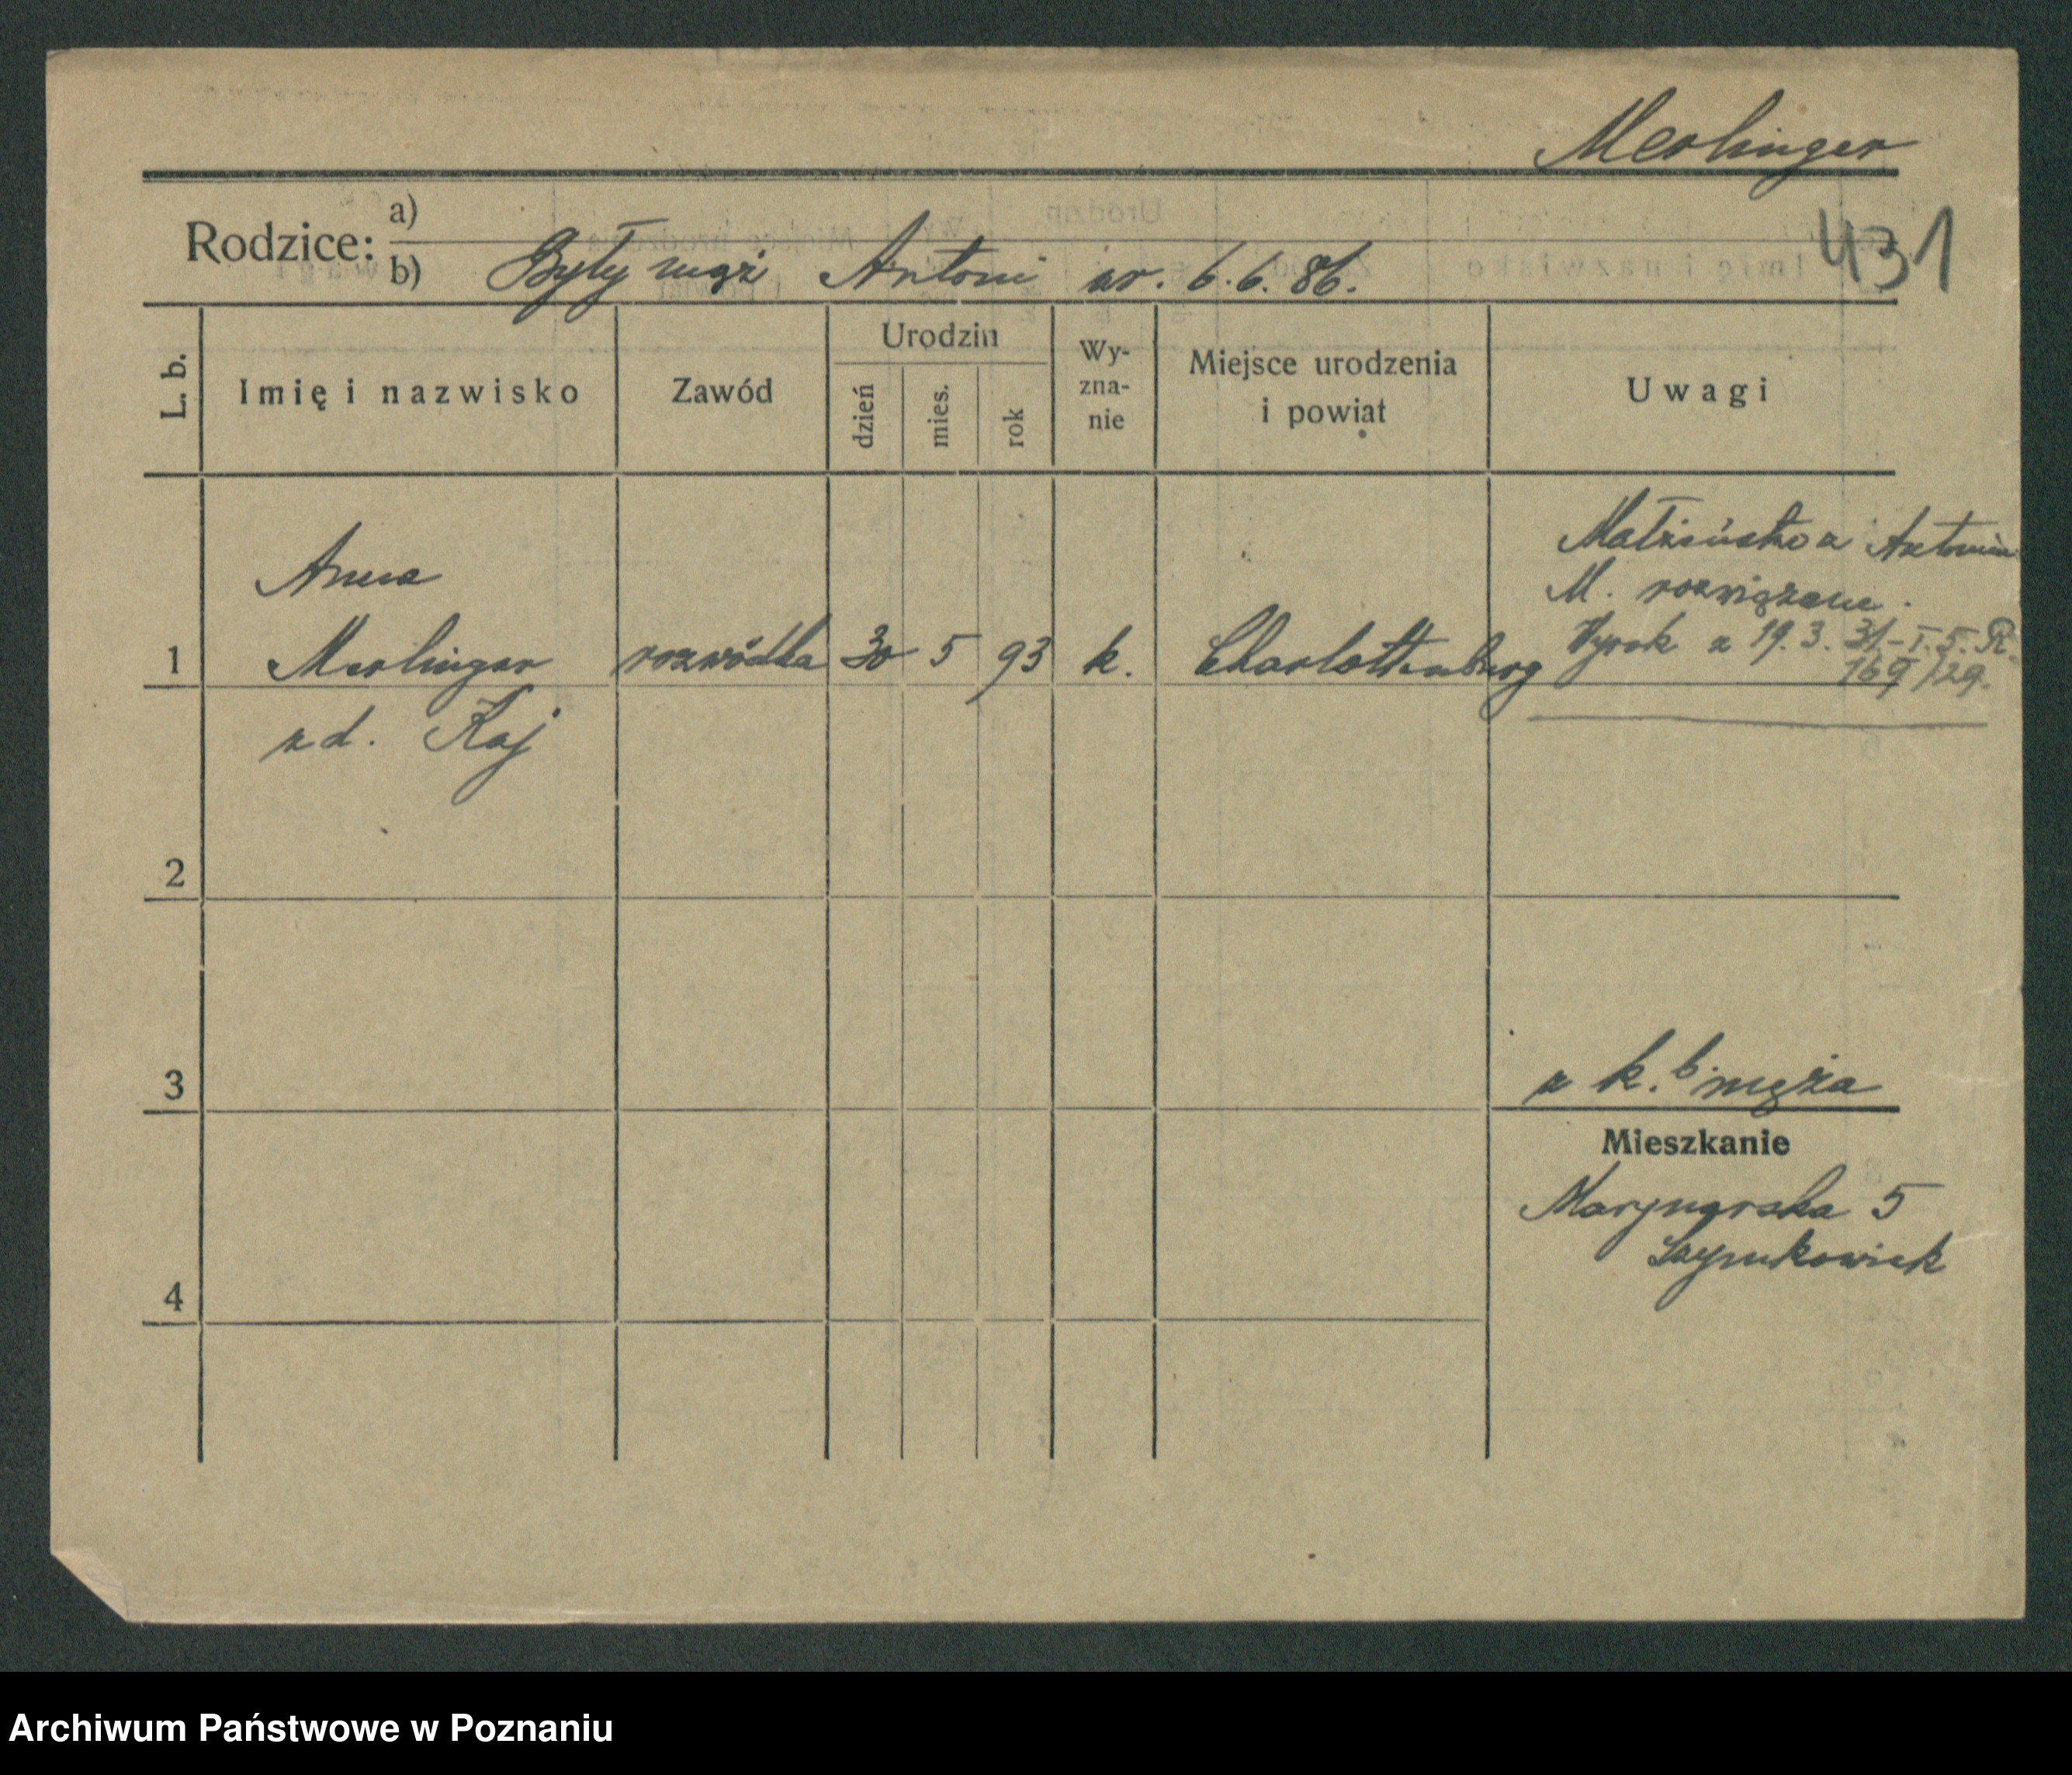 Merlinger
431
Rodzice: a)
b) Były mąż Antoni ur. 6.6.86.
L. b. Imię i nazwisko Zawód Urodzin dzień mies. rok Wy-zna-nie Miejsce urodzenia i powiat Uwagi
Małżeństwo z Antonim
M. rozwiązane.
Wyrok z 19.3.31 - I. 5. R.
169/29.
Anna
1 Merlinger rozwódka 30 5 93 k. Charlottenburg
zd. Raj
2
3
z k. b. męża
Mieszkanie
Marynarska 5
4
Archiwum Państwowe w Poznaniu